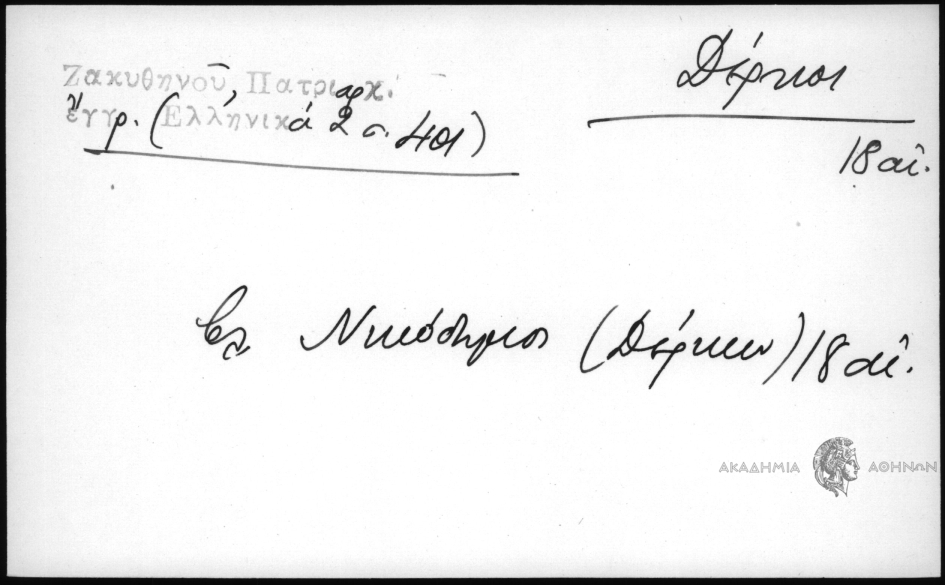 Ζακυθηνοῦ, Πατριαρχ.
ἔγγρ. (Ἑλληνικά 2 σ. 401)
Δέρκοι
18 αἰ.
βλ Νικόδημος (Δέρκων) 18 αἰ.
ΑΚΑΔΗΜΙΑ ΑΘΗΝΩΝ